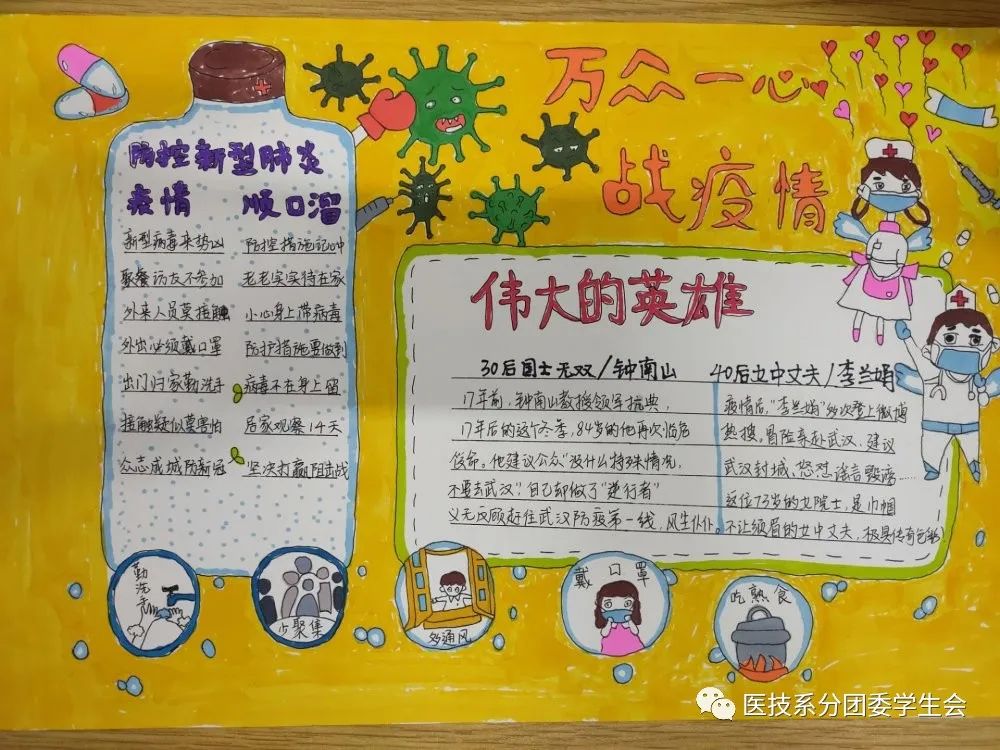 万众一心
战疫情
防控新型肺炎
疫情 顺口溜
新型病毒来势凶 防控措施记心中
聚餐访友不参加 老老实实待在家
外来人员莫接触 小心身上带病毒
外出必须戴口罩 防护措施要做到
出门归家勤洗手 病毒不在身上留
接触疑似莫害怕 居家观察14天
众志成城防新冠 坚决打赢阻击战
伟大的英雄
30后国士无双/钟南山
17年前,钟南山教授领军抗典,
17年后的这个冬季,84岁的他再次临危
俊命。他建议公众"没什么特殊情况,
不要去武汉"自己却做了"逆行者"
义无反顾赶往武汉防疫第一线,风尘仆仆。
40后女中丈夫/李兰娟
疫情后,"李兰娟"多次登上微博
热搜。冒险亲赴武汉、建议
武汉封城、怒怼谣言毁谤……
这位73岁的女院士,是巾帼
不让须眉的女中丈夫,极具传奇色彩
勤洗手
少聚集
多通风
戴口罩
吃熟食
医技系分团委学生会